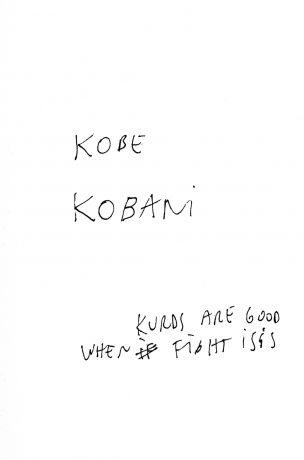 KOBE
KOBANi
KURDS ARE GOOD
WHEN FiGHT iSiS